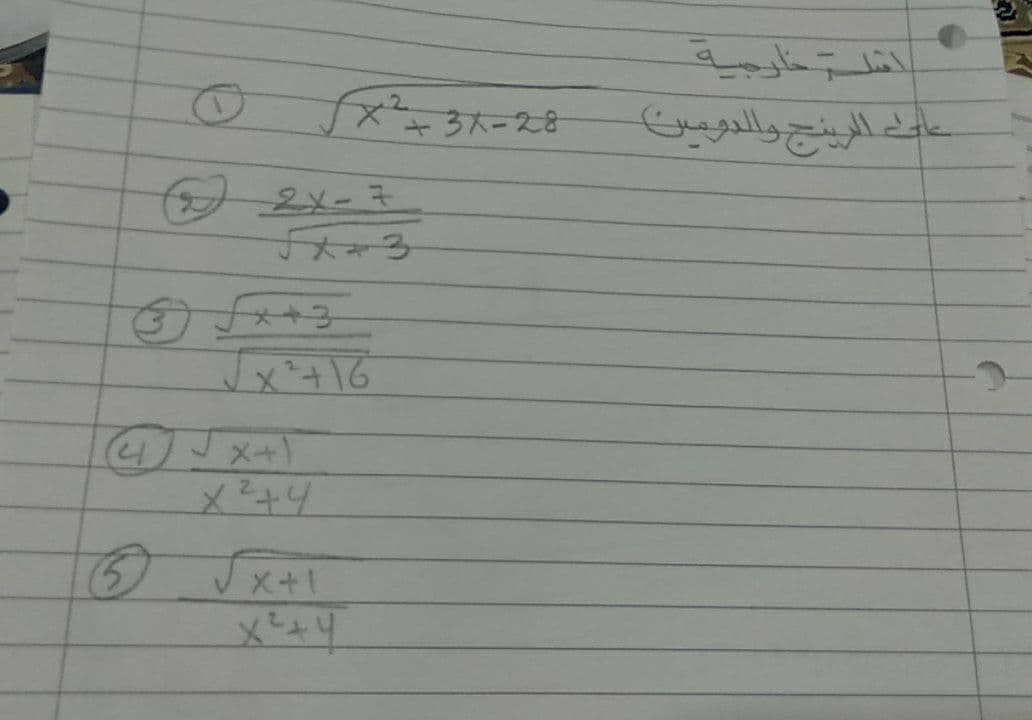 امثلة خارجية
على الرينج والدومين
① √x² + 3x - 28
② 2x - 7 / √x + 3
③ √x + 3 / √x² + 16
④ √x + 1 / x² + 4
⑤ √x + 1 / x² + 4